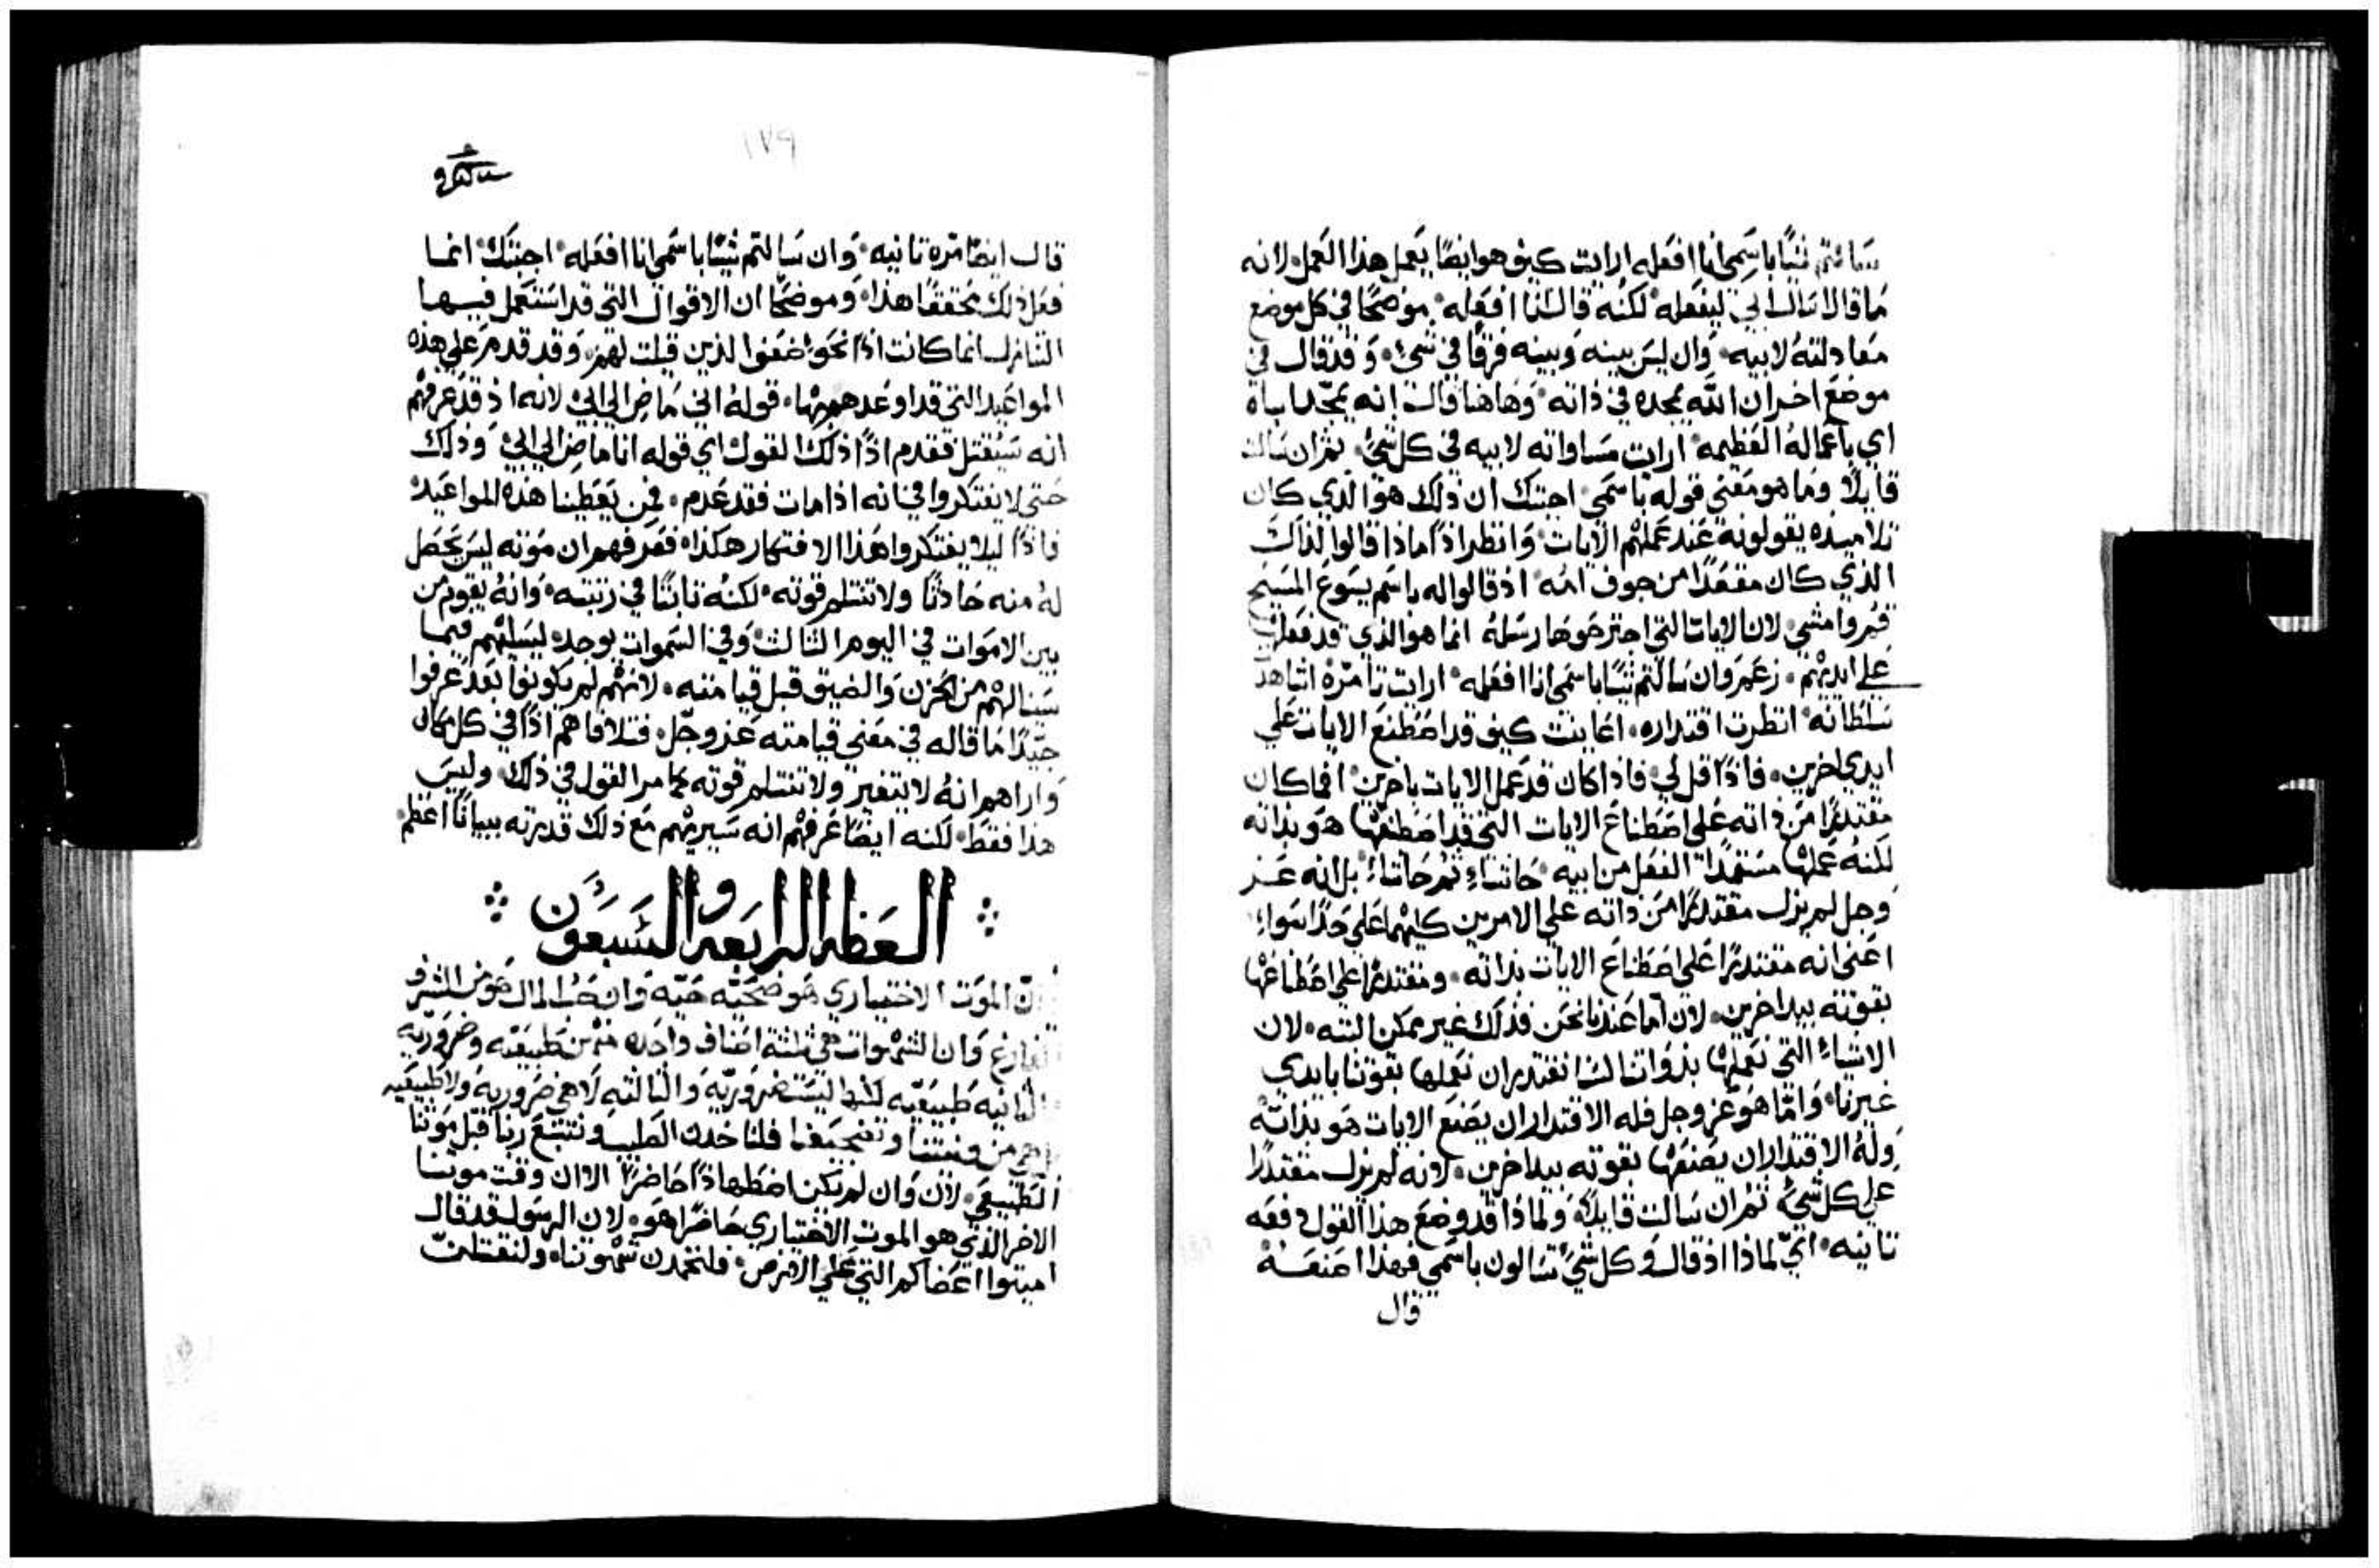 سالتم شيًا باسمي انا افعله ارايت كيف هو ايضًا يعمل هذا العمل لانه
ما قال اسال ابي ليفعله لكنه قال انا افعله موضحًا في كل موضع
معادلته لابيه وان ليس بينه وبينه فرقًا في شي وقد قال في
موضع اخر ان الله يمجده في ذاته وهاهنا قال انه يمجد اباه
اي باعماله العظيمه ارايت مساواته لابيه في كل شي ثم ان سالت
قايلًا وما هو معني قوله باسمي اجبتك ان ذلك هو الذي كان
تلاميذه يقولونه عند عملهم الايات وانظر اذًا ماذا قالوا لذاك
الذي كان مقعدًا من جوف امه اذ قالوا له باسم يسوع المسيح
قم وامشي لان الايات التي اجترحوها رسله انما هو الذي قد فعلها
علي ايديهم زعم وان سالتم شيًا باسمي انا افعله ارايت تامره اشاهدت
سلطانه انظرت اقتداره اعاينت كيف قد اصطنع الايات علي
ايدي اخرين فاذًا قل لي فاذا كان قد عمل الايات باخرين افما كان
مقتدرًا من ذاته علي اصطناع الايات التي قد اصطنعها هو بذاته
لكنه عملها مستمدًا الفعل من ابيه حاشاء ثم حاشاء بل انه عز
وجل لم يزل مقتدرًا من ذاته علي الامرين كليهما علي حدًا سواء
اعني انه مقتدرًا علي اصطناع الايات بذاته ومقتدرًا علي اصطناعها
بقوته بيد اخرين لان اما عندنا نحن فذلك غير ممكن البته لان
الاشياء التي نعملها بذواتنا لسنا نقتدر ان نعملها بقوتنا بايدي
غيرنا واما هو عز وجل فله الاقتدار ان يصنع الايات هو بذاته
وله الاقتدار ان يصنعها بقوته بيد اخرين لانه لم يزل مقتدرًا
علي كل شي ثم ان سالت قايلًا ولماذا قد وضع هذا القول دفعه
ثانيه اي لماذا اذ قال وكل شي تسالون باسمي فهذا اصنعه
قال
١٧٩
قال ايضًا مره ثانيه وان سالتم شيًا باسمي انا افعله اجبتك انما
فعل ذلك محققًا هذا وموضحًا ان الاقوال التي قد استعمل فيها
التنازل انما كانت اذًا نحو ضعف الذين قيلت لهم وقد قدم علي هذه
المواعيد التي قد اوعدهم بها قوله اني ماضِ الي ابي لانه اذ قد عرفهم
انه سيقتل فقدم اذًا ذلك القول اي قوله انا ماضِ الي ابي وذلك
حتي لا يفتكروا في انه اذا مات فقد عدم فمن يعطينا هذه المواعيد
فاذًا ليلا يفتكروا هذا الافتكار هكذا فعرفهم ان موته ليس يحصل
له منه حادثًا ولا تنثلم قوته لكنه ثابتًا في رتبته وانه يقوم من
بين الاموات في اليوم الثالث وفي السموات يوجد ليسليهم فيما
سينالهم من الحزن والضيق قبل قيامته لانهم لم يكونوا بعد عرفوا
جيدًا ما قاله في معني قيامته عز وجل فتلافاهم اذًا في كل مكان
واراهم انه لا يتغير ولا تنثلم قوته كما مر القول في ذلك وليس
هذا فقط لكنه ايضًا عرفهم انه سيريهم مع ذلك قدرته بيبانًا اعظم
العظه الرابعه والسبعون
ان الموت الاختياري هو ضحيه حيه وان حب المال هو من الشرف
الفارغ وان الشهوات هي ثلثه اصناف واحده منهن طبيعيه وضروريه
والثانيه طبيعيه لكنها ليست ضروريه والثالثه لا هي ضروريه ولا طبيعيه
من فلناخذن الصليب ونتبع ربنا قبل موتنا
الطبيعي لان وان لم نكن اضطهادًا حاضرًا الان وقت موتنا
الاخر الذي هو الموت الاختياري حاضرًا هو لان الرسول قد قال
اميتوا اعضاكم التي علي الارض فلنخمدن شهوتنا ولنقتلن